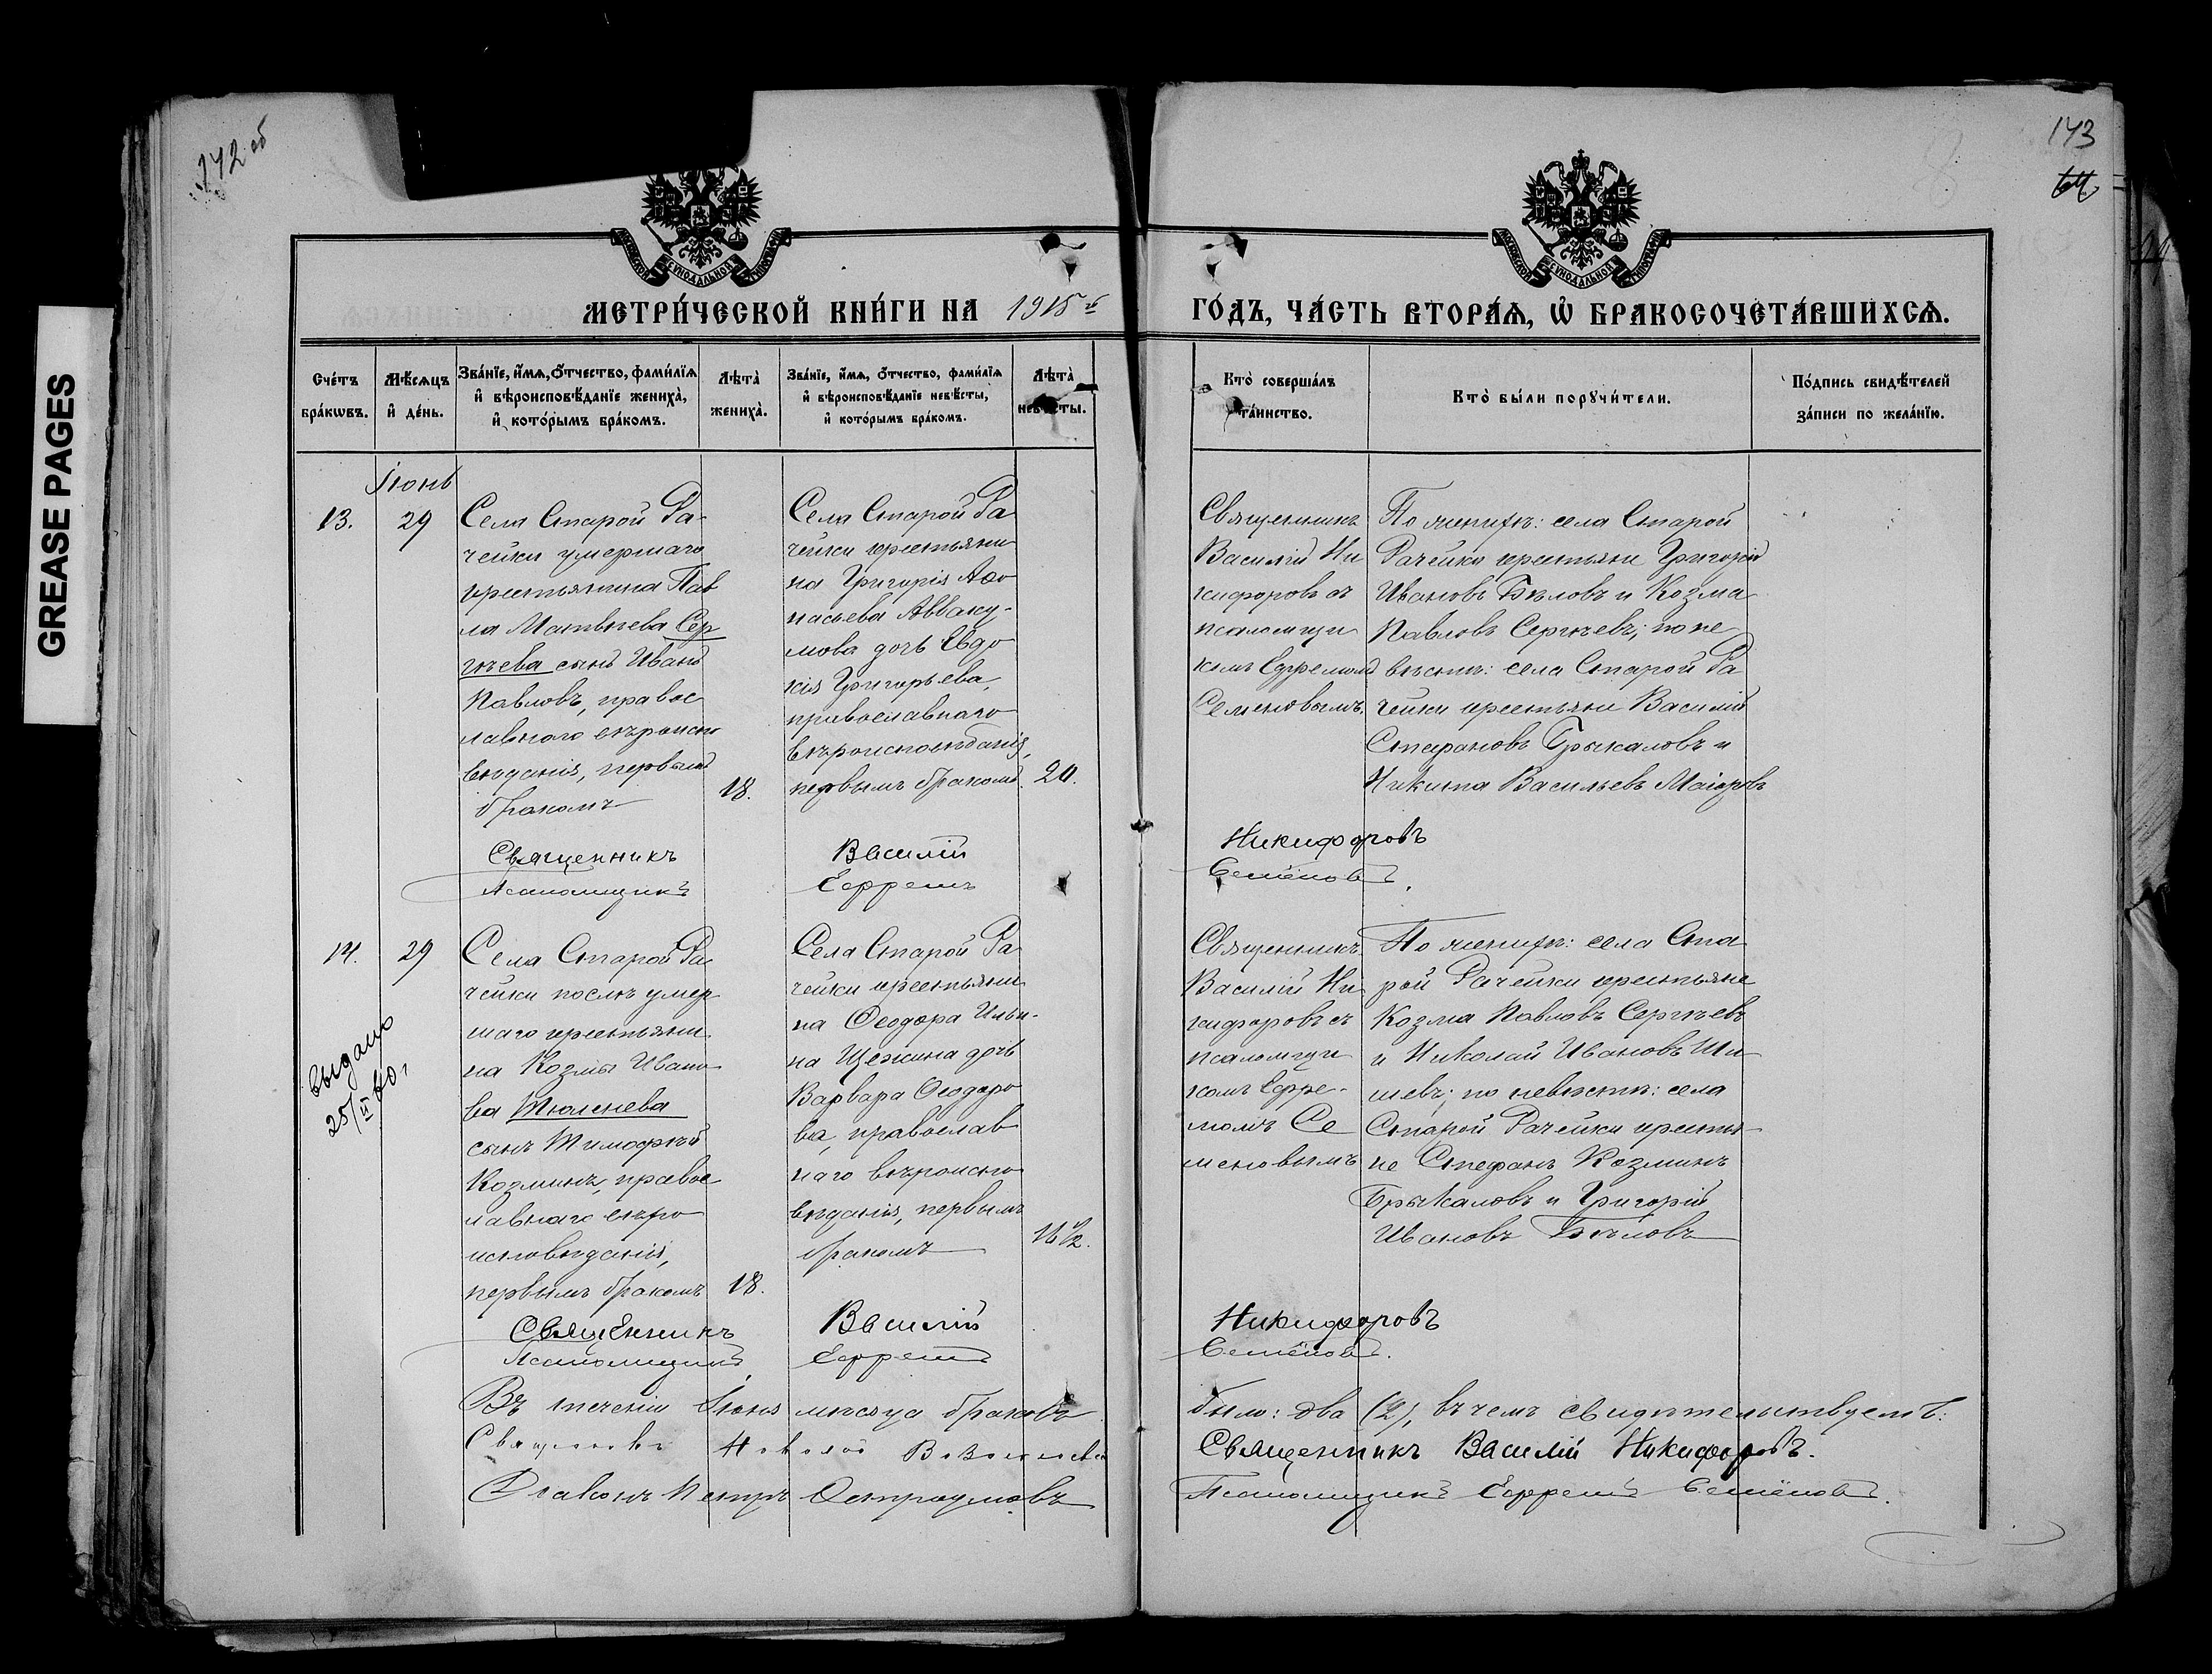 GREASE PAGES
142 об
143
МЕТРИ́ЧЕСКОЙ КНИ́ГИ НА 1915й
ГО́ДЪ, ЧА́СТЬ ВТОРА́Ѧ, Ѽ БРАКОСОЧЕТА́ВШИХСѦ.
Сче́тъ бра́кѡвъ.
Мѣ́сяцъ и҆ де́нь.
Зва́нїе, и҆́мѧ, ѻ҆́тчество, фами́лїѧ
и҆ вѣроисповѣ́данїе жениха̀,
и҆ кото́рымъ бра́комъ.
Лѣта̀ жениха̀.
Зва́нїе, и҆́мѧ, ѻ҆́тчество, фами́лїѧ
и҆ вѣроисповѣ́данїе невѣ́сты,
и҆ кото́рымъ бра́комъ.
Лѣта̀ невѣ́сты.
Кто̀ соверша́лъ та́инство.
Кто̀ бы́ли порꙋчи́тели.
По́дпись свидѣ́телей
за́писи по жела́нїю.
Іюнь
13.
29
Села Старой Ра-
чейки умершаго
крестьянина Пав
ла Матвѣева Сер
гѣева сынъ Иванъ
Павловъ, правос
лавного вѣроиспо
вѣданія, первымъ
бракомъ
18.
Села Старой Ра
чейки крестьяни
на Григорія Афо
насьева Авваку-
мова дочь Евдо
кія Григорьева,
православнаго
вѣроисповѣданія,
первымъ бракомъ
20.
Священникъ
Василій Ни
кифоровъ съ
псаломщи
комъ Ефремомъ
Семеновымъ.
По женихѣ: села Старой
Рачейки крестьяне Григорій
Ивановъ Бѣловъ и Козма
Павловъ Сергѣевъ; по не
вѣстѣ: села Старой Ра
чейки крестьяне Василій
Стефановъ Брыкаловъ и
Никита Васильевъ Маіоровъ
Священникъ Василій Никифоровъ
Псаломщикъ Ефремъ Семёновъ.
14.
29
выдано
25/II 40 г
Села Старой Ра
чейки послѣ умер
шаго крестьяни
на Козмы Ивано
ва Тюленева
сынъ Тимофѣй
Козминъ, правос
лавнаго вѣро
исповѣданія,
первымъ бракомъ
18.
Села Старой Ра
чейки крестьяни
на Ѳеодора Ильи-
на Щежина дочь
Варвара Ѳеодоро
ва, православ
наго вѣроиспо
вѣданія, первымъ
бракомъ
16 1/2.
Священникъ
Василій Ни
кифоровъ съ
псаломщи
комъ Ефре-
момъ Се
меновымъ
По женихѣ: села Ста
рой Рачейки крестьяне
Козма Павловъ Сергѣевъ
и Николай Ивановъ Ши
шевъ; по невѣстѣ: села
Старой Рачейки крестья
не Стефанъ Козминъ
Брыкаловъ и Григорій
Ивановъ Бѣловъ
Священникъ Василій Никифоровъ
Псаломщикъ Ефремъ Семёновъ.
Въ теченіи Іюня мѣсяца браковъ было: два (2), въ чемъ свидѣтельствуемъ:
Священникъ Василій Никифоровъ.
Діаконъ Петръ Остроумовъ Псаломщикъ Ефремъ Семёновъ.